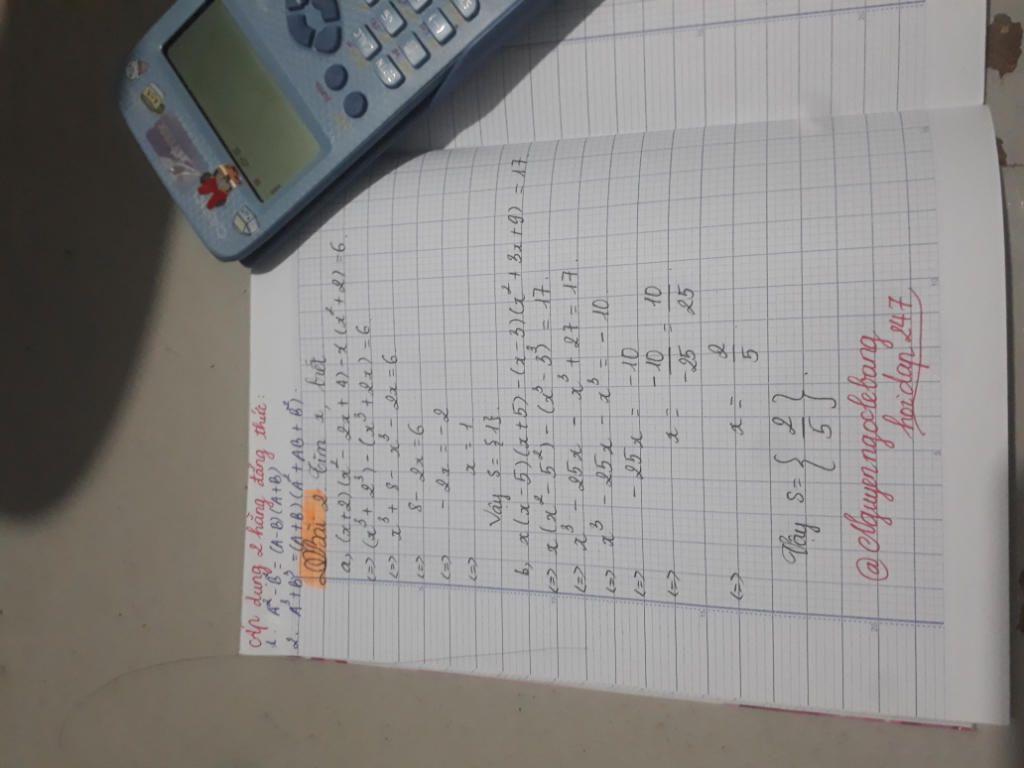 Áp dụng 2 hằng đẳng thức:
1. A² - B² = (A-B)(A+B)
2. A³ + B³ = (A+B)(A² + AB + B²)
Bài 2 Tìm x, biết
a, (x+2)(x² - 2x + 4) - x(x² + 2) = 6.
<=> (x³ + 2³) - (x³ + 2x) = 6
<=> x³ + 8 - x³ - 2x = 6
<=> 8 - 2x = 6
<=> -2x = -2
<=> x = 1
Vậy S = {1}
b, x(x-5)(x+5) - (x-3)(x² + 3x + 9) = 17
<=> x(x² - 5²) - (x³ - 3³) = 17.
<=> x³ - 25x - x³ + 27 = 17.
<=> x³ - 25x - x³ = -10
<=> -25x = -10
<=> x = -10/-25 = 10/25
<=> x = 2/5
Vậy S = {2/5}
@Nguyenngoclebang
hoidap247